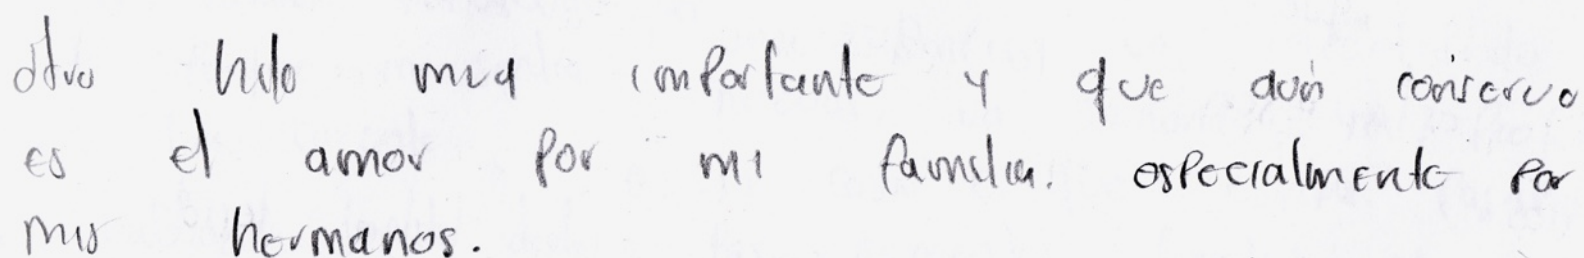 otro hilo muy importante y que aún conservo
es el amor por mi familia. especialmente por
mis hermanos.